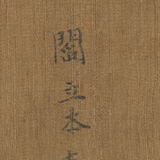 閻立本